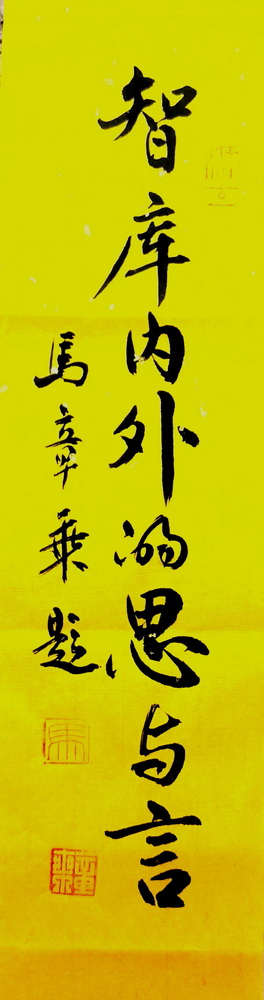 智库内外的思与言
馬章乘题